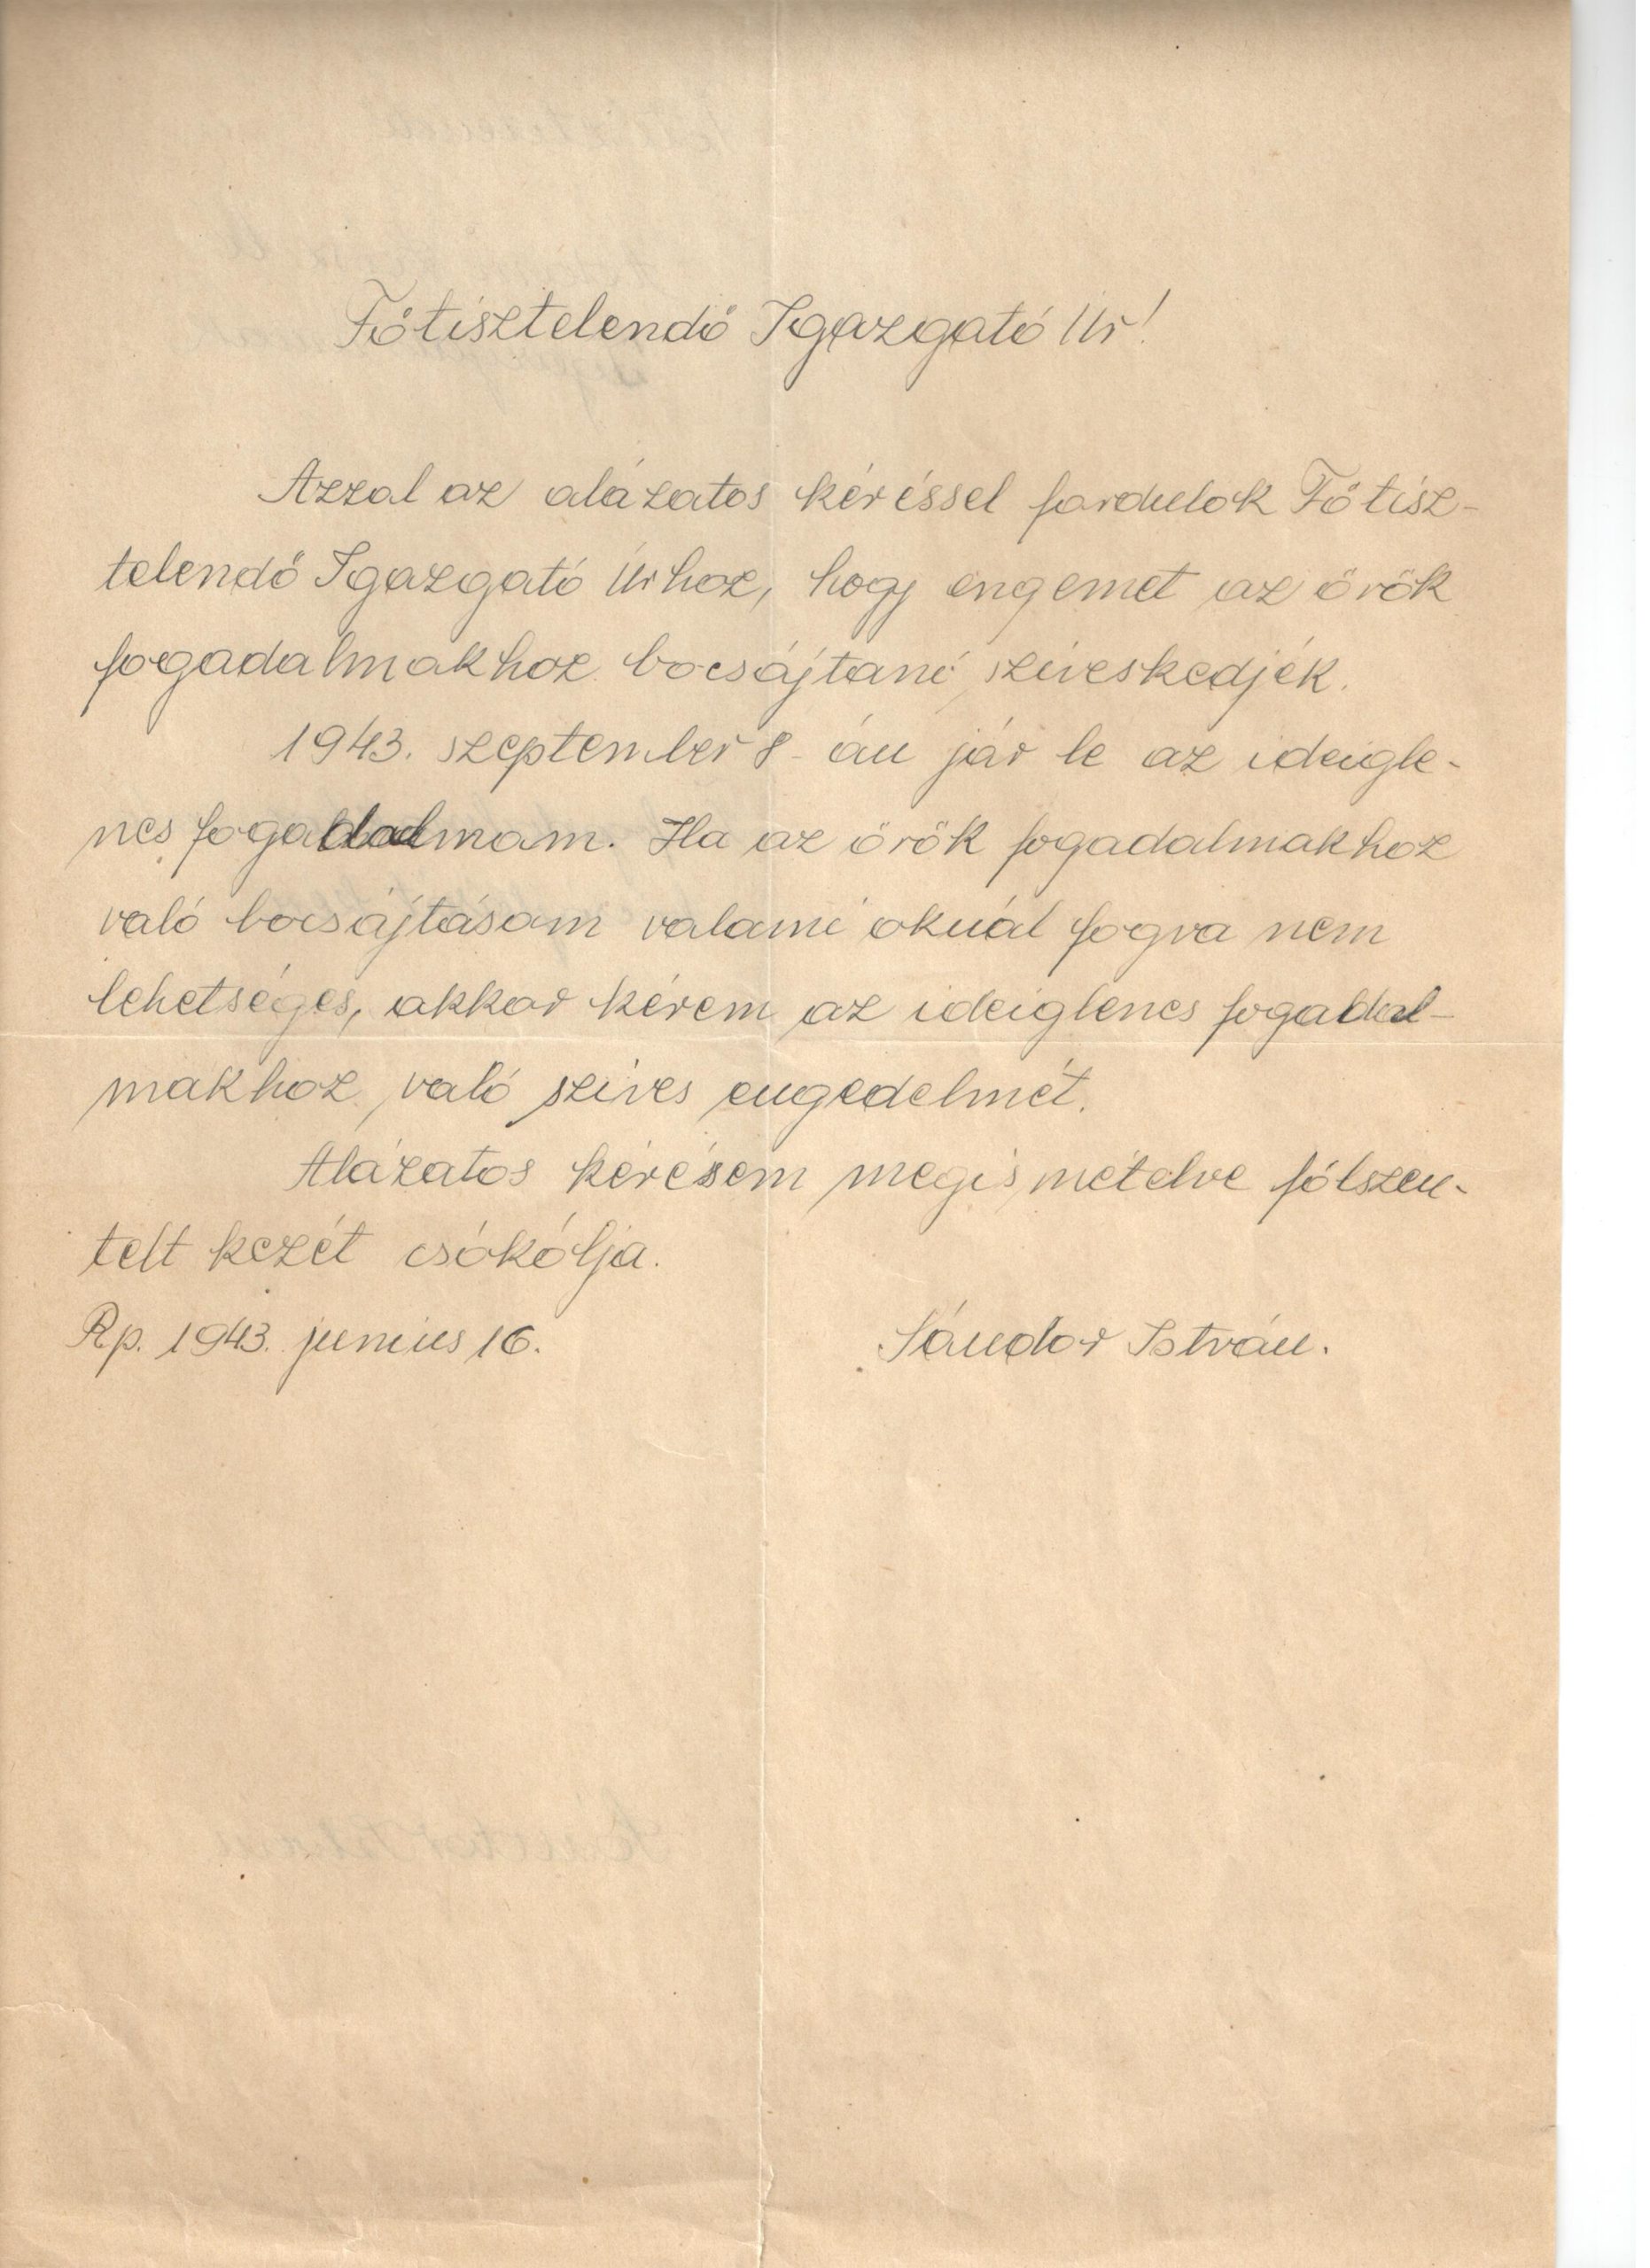 Főtisztelendő Igazgató Úr!
Azzal az alázatos kéréssel fordulok Főtisz-
telendő Igazgató Úrhoz, hogy engemet az örök
fogadalmakhoz bocsájtani sziveskedjék.
1943. szeptember 8-án jár le az ideigle-
nes fogadalmam. Ha az örök fogadalmakhoz
való bocsájtásom valami oknál fogva nem
lehetséges, akkor kérem az ideiglenes fogadal-
makhoz való szives engedelmét.
Alázatos kérésem megismételve fölszen-
telt kezét csókólja.
Rp. 1943. junius 16.
Sándor István.